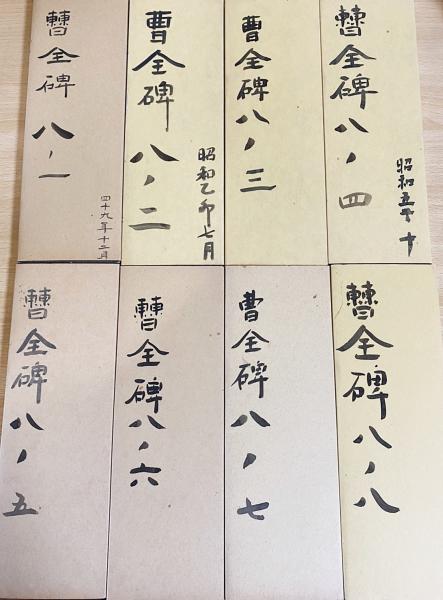 𣍘全碑八ノ一
四十九年十二月
曹全碑八ノ二
昭和乙卯七月
曹全碑八ノ三
𣍘全碑八ノ四
昭和五 十
𣍘全碑八ノ五
𣍘全碑八ノ六
曹全碑八ノ七
𣍘全碑八ノ八